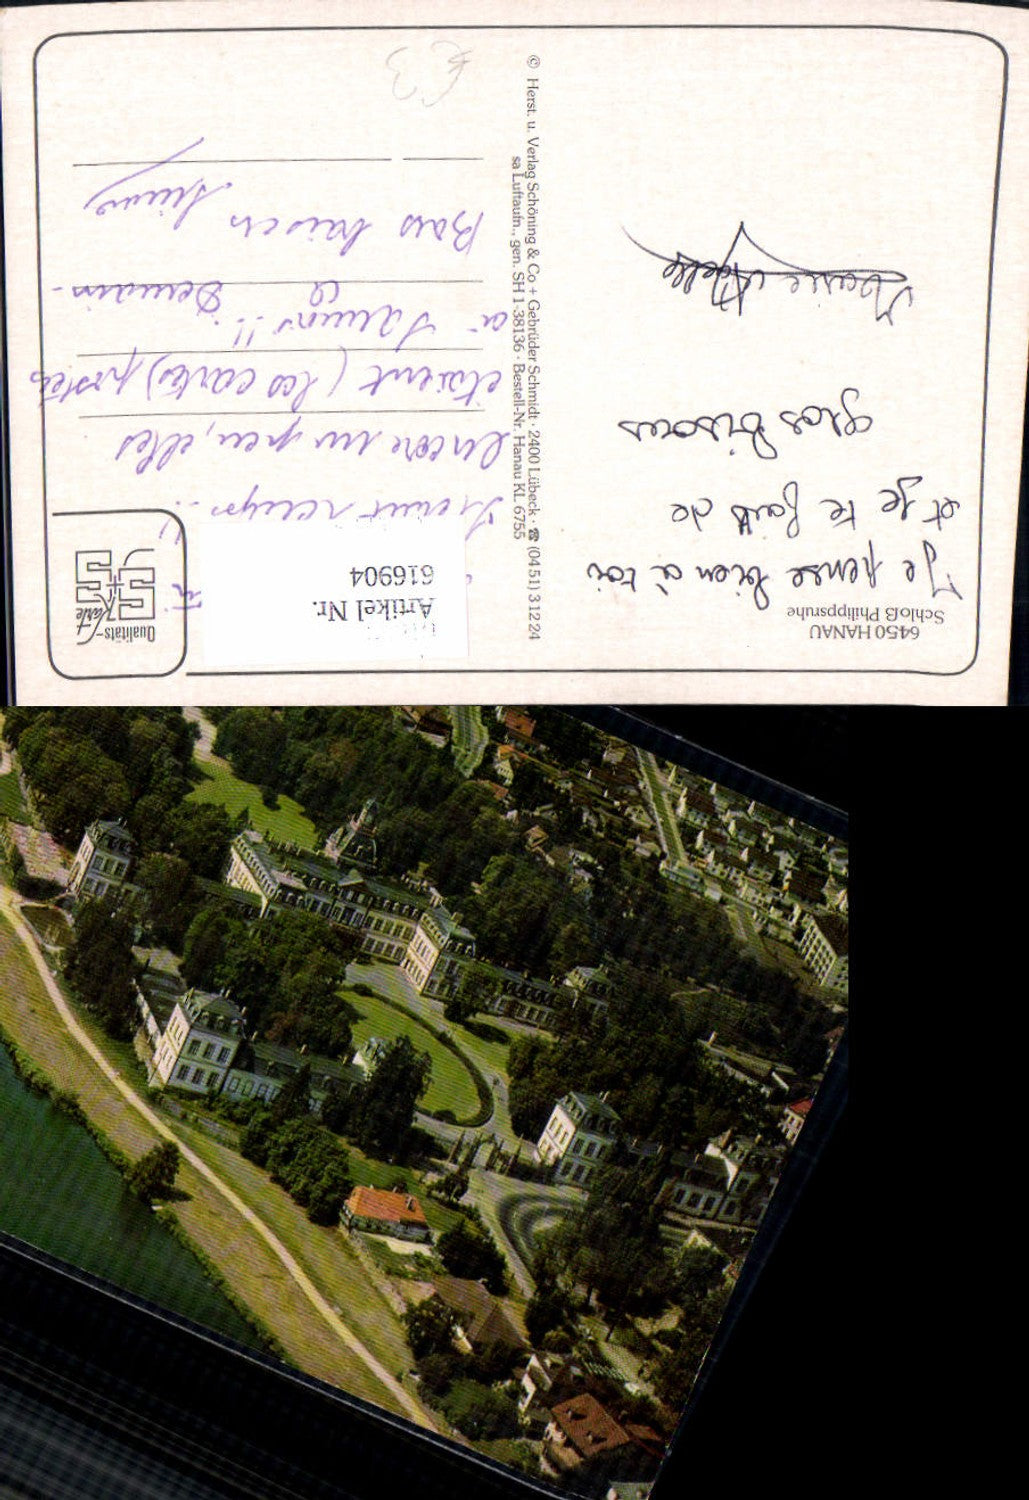 6450 HANAU
Schloß Philippsruhe
Je pense bien à toi
et je te fais de
gros bisous
Marie Adèle
© Herst. u. Verlag Schöning & Co + Gebrüder Schmidt · 2400 Lübeck · ☎ (04 51) 3 12 24
sa Luftaufn., gen. SH 1-38136 · Bestell-Nr. Hanau KL 6755
Artikel Nr.
616904
Qualitäts-
Karte
S+S
encore un peu, elles
étaient (les cartes) postées
à
!! Demain.
Bons baisers
€3